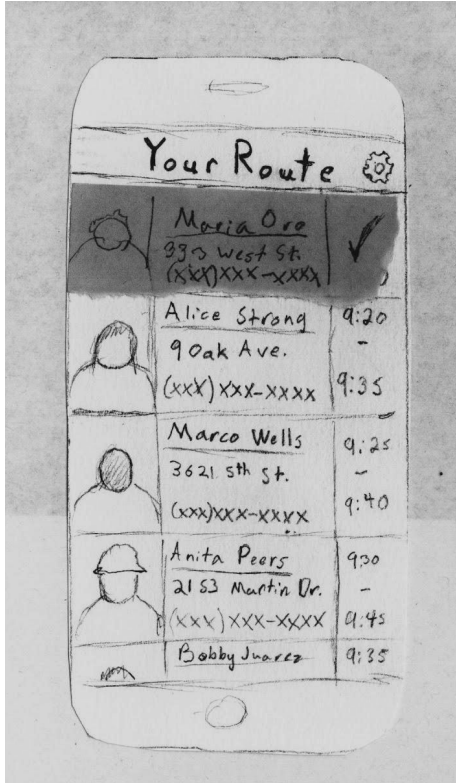 Your Route
Maria Oro
333 West St.
(xxx)xxx-xxxx
Alice Strong
9:20
9 Oak Ave.
-
(xxx)xxx-xxxx
9:35
Marco Wells
9:25
3621 5th St.
-
(xxx)xxx-xxxx
9:40
Anita Peers
9:30
2153 Martin Dr.
-
(xxx)xxx-xxxx
9:45
Bobby Juarez
9:35